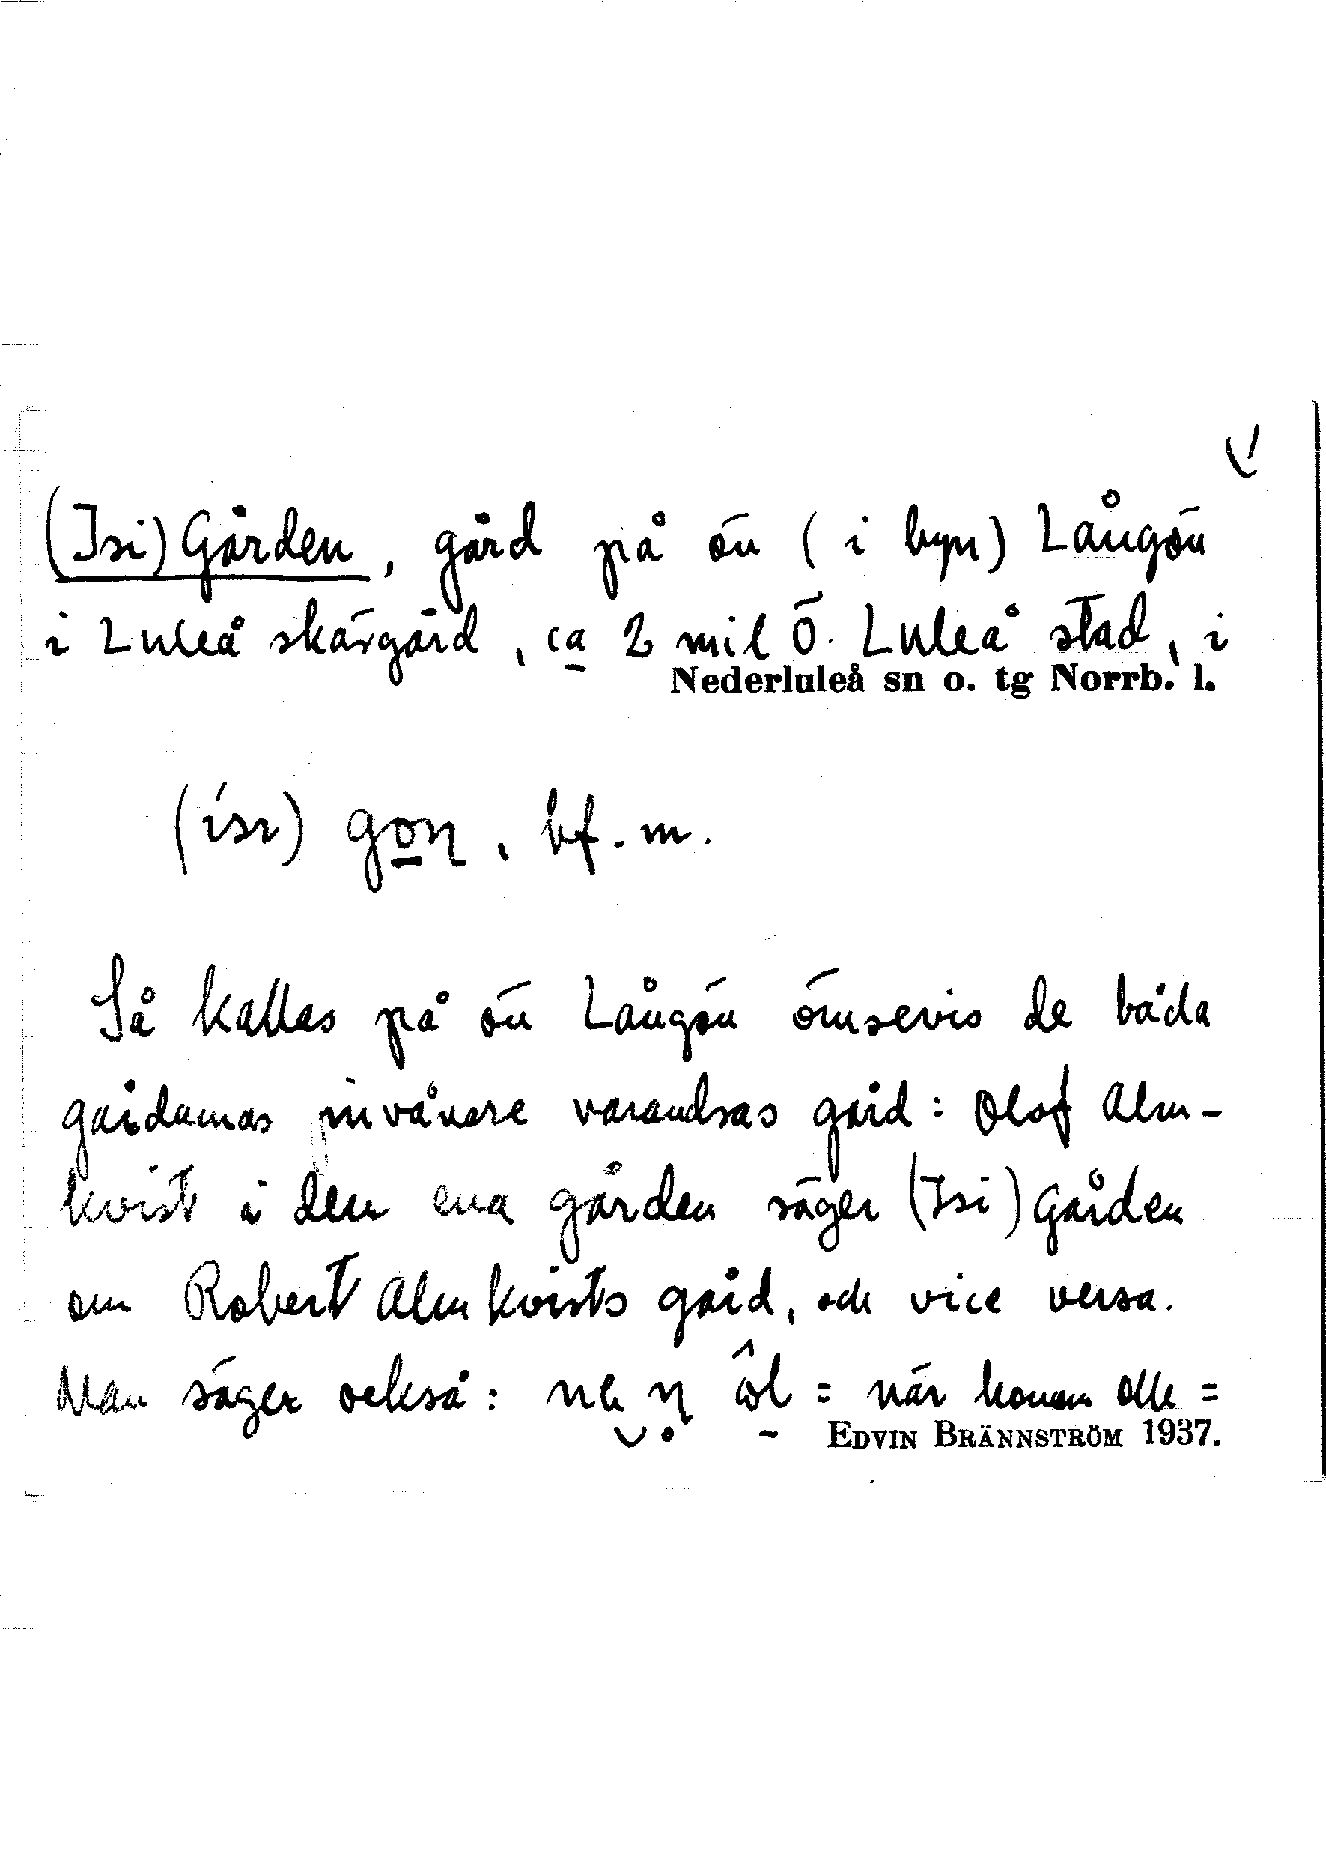 (Isi)Gården, gård på ön (i byn) Långön
i Luleå skärgård, ca 2 mil Ö. Luleå stad, i
Nederluleå sn o. tg Norrb. l.
(ísı) gon, bf. m.
Så kallas på ön Långön ömsevis de båda
gårdarnas invånare varandras gård: Olof Alm-
kvist i den ena gården säger (Isi)Gården
om Robert Almkvists gård, och vice versa.
Man säger också: = när konom Olle =
EDVIN BRÄNNSTRÖM 1937.